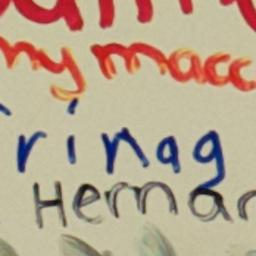 my macc
rinag
Hernar